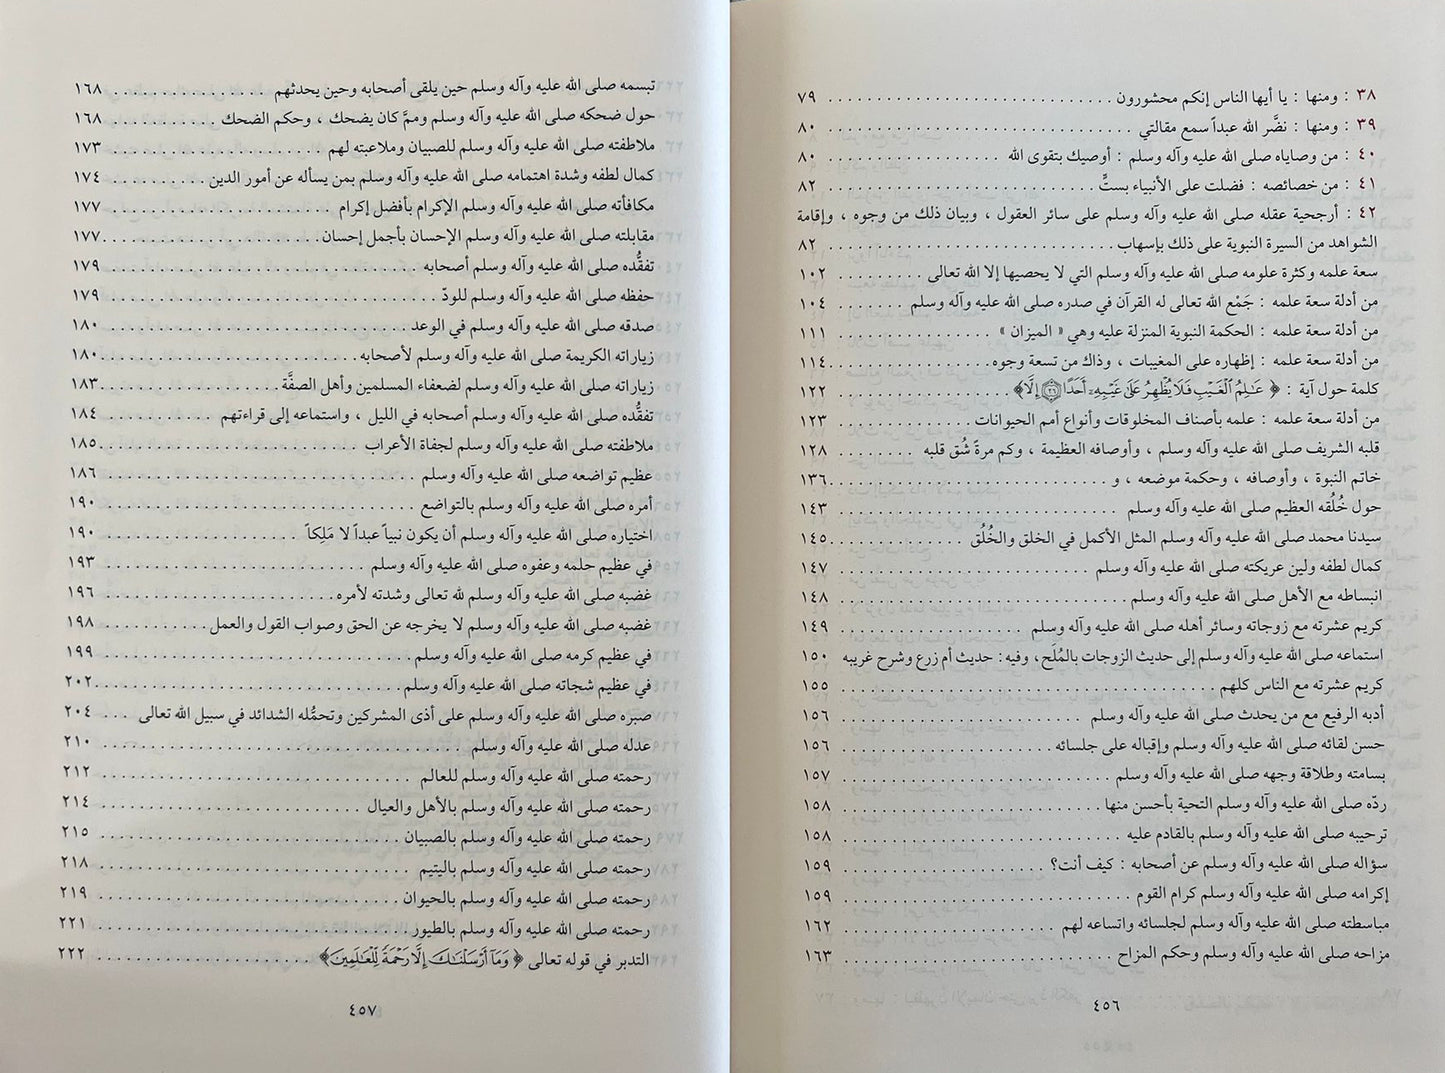 ٣٨ : ومنها : يا أيها الناس إنكم محشورون ............................. ٧٩
٣٩ : ومنها : نضَّر الله عبداً سمع مقالتي ............................. ٨٠
٤٠ : من وصاياه صلى الله عليه وآله وسلم : أوصيك بتقوى الله .................. ٨٠
٤١ : من خصائصه : فضلت على الأنبياء بستٍّ ............................. ٨٢
٤٢ : أرجحية عقله صلى الله عليه وآله وسلم على سائر العقول ، وبيان ذلك من وجوه ، وإقامة
الشواهد من السيرة النبوية على ذلك بإسهاب ............................. ٨٢
سعة علمه وكثرة علومه صلى الله عليه وآله وسلم التي لا يحصيها إلا الله تعالى ......... ١٠٢
من أدلة سعة علمه : جَمْع الله تعالى له القرآن في صدره صلى الله عليه وآله وسلم ........ ١٠٤
من أدلة سعة علمه : الحكمة النبوية المنزلة عليه وهي « الميزان » ................ ١١١
من أدلة سعة علمه : إظهاره على المغيبات ، وذاك من تسعة وجوه .................. ١١٤
كلمة حول آية : ﴿ عَـٰلِمُ ٱلْغَيْبِ فَلَا يُظْهِرُ عَلَىٰ غَيْبِهِۦٓ أَحَدًا ۝٢٦ إِلَّا﴾ .................. ١٢٢
من أدلة سعة علمه : علمه بأصناف المخلوقات وأنواع أمم الحيوانات ................ ١٢٣
قلبه الشريف صلى الله عليه وآله وسلم ، وأوصافه العظيمة ، وكم مرةً شُق قلبه ......... ١٢٨
خاتم النبوة ، وأوصافه ، وحكمة موضعه ، و ............................. ١٣٦
حول خُلُقه العظيم صلى الله عليه وآله وسلم ............................. ١٤٣
سيدنا محمد صلى الله عليه وآله وسلم المثل الأكمل في الخلق والخُلُق ............. ١٤٥
كمال لطفه ولين عريكته صلى الله عليه وآله وسلم ......................... ١٤٧
انبساطه مع الأهل صلى الله عليه وآله وسلم ............................. ١٤٨
كريم عشرته مع زوجاته وسائر أهله صلى الله عليه وآله وسلم ................... ١٤٩
استماعه صلى الله عليه وآله وسلم إلى حديث الزوجات بالمُلَح ، وفيه : حديث أم زرع وشرح غريبه ١٥٠
كريم عشرته مع الناس كلهم ................................... ١٥٥
أدبه الرفيع مع من يحدث صلى الله عليه وآله وسلم ......................... ١٥٦
حسن لقائه صلى الله عليه وآله وسلم وإقباله على جلسائه ..................... ١٥٦
بسامته وطلاقة وجهه صلى الله عليه وآله وسلم ........................... ١٥٧
ردّه صلى الله عليه وآله وسلم التحية بأحسن منها .......................... ١٥٨
ترحيبه صلى الله عليه وآله وسلم بالقادم عليه ............................ ١٥٨
سؤاله صلى الله عليه وآله وسلم عن أصحابه : كيف أنت؟ ..................... ١٥٩
إكرامه صلى الله عليه وآله وسلم كرام القوم ............................. ١٥٩
مباسطته صلى الله عليه وآله وسلم لجلسائه واتساعه لهم ...................... ١٦٢
مزاحه صلى الله عليه وآله وسلم وحكم المزاح ............................ ١٦٣
٤٥٦
تبسمه صلى الله عليه وآله وسلم حين يلقى أصحابه وحين يحدثهم ................ ١٦٨
حول ضحكه صلى الله عليه وآله وسلم ومِمَّ كان يضحك ، وحكم الضحك ........... ١٦٨
ملاطفته صلى الله عليه وآله وسلم للصبيان وملاعبته لهم ..................... ١٧٣
كمال لطفه وشدة اهتمامه صلى الله عليه وآله وسلم بمن يسأله عن أمور الدين .......... ١٧٤
مكافأته صلى الله عليه وآله وسلم الإكرام بأفضل إكرام ....................... ١٧٧
مقابلته صلى الله عليه وآله وسلم الإحسان بأجمل إحسان ...................... ١٧٧
تفقُّده صلى الله عليه وآله وسلم أصحابه .............................. ١٧٩
حفظه صلى الله عليه وآله وسلم للودّ ................................ ١٧٩
صدقه صلى الله عليه وآله وسلم في الوعد ............................. ١٨٠
زياراته الكريمة صلى الله عليه وآله وسلم لأصحابه ......................... ١٨٠
زياراته صلى الله عليه وآله وسلم لضعفاء المسلمين وأهل الصفَّة ................. ١٨٣
تفقُّده صلى الله عليه وآله وسلم أصحابه في الليل ، واستماعه إلى قراءتهم ............ ١٨٤
ملاطفته صلى الله عليه وآله وسلم لجفاة الأعراب ......................... ١٨٥
عظيم تواضعه صلى الله عليه وآله وسلم .............................. ١٨٦
أمره صلى الله عليه وآله وسلم بالتواضع .............................. ١٩٠
اختياره صلى الله عليه وآله وسلم أن يكون نبياً عبداً لا مَلِكاً .................. ١٩٠
في عظيم حلمه وعفوه صلى الله عليه وآله وسلم .......................... ١٩٣
غضبه صلى الله عليه وآله وسلم لله تعالى وشدته لأمره ....................... ١٩٦
غضبه صلى الله عليه وآله وسلم لا يخرجه عن الحق وصواب القول والعمل ........... ١٩٨
في عظيم كرمه صلى الله عليه وآله وسلم ............................. ١٩٩
في عظيم شجاته صلى الله عليه وآله وسلم ............................ ٢٠٢
صبره صلى الله عليه وآله وسلم على أذى المشركين وتحمُّله الشدائد في سبيل الله تعالى ... ٢٠٤
عدله صلى الله عليه وآله وسلم .................................. ٢١٠
رحمته صلى الله عليه وآله وسلم للعالم ............................... ٢١٢
رحمته صلى الله عليه وآله وسلم بالأهل والعيال .......................... ٢١٤
رحمته صلى الله عليه وآله وسلم بالصبيان ............................. ٢١٥
رحمته صلى الله عليه وآله وسلم باليتيم .............................. ٢١٨
رحمته صلى الله عليه وآله وسلم بالحيوان ............................. ٢١٩
رحمته صلى الله عليه وآله وسلم بالطيور .............................. ٢٢١
التدبر في قوله تعالى ﴿ وَمَآ أَرْسَلْنَـٰكَ إِلَّا رَحْمَةً لِّلْعَـٰلَمِينَ﴾ ...................... ٢٢٢
٤٥٧